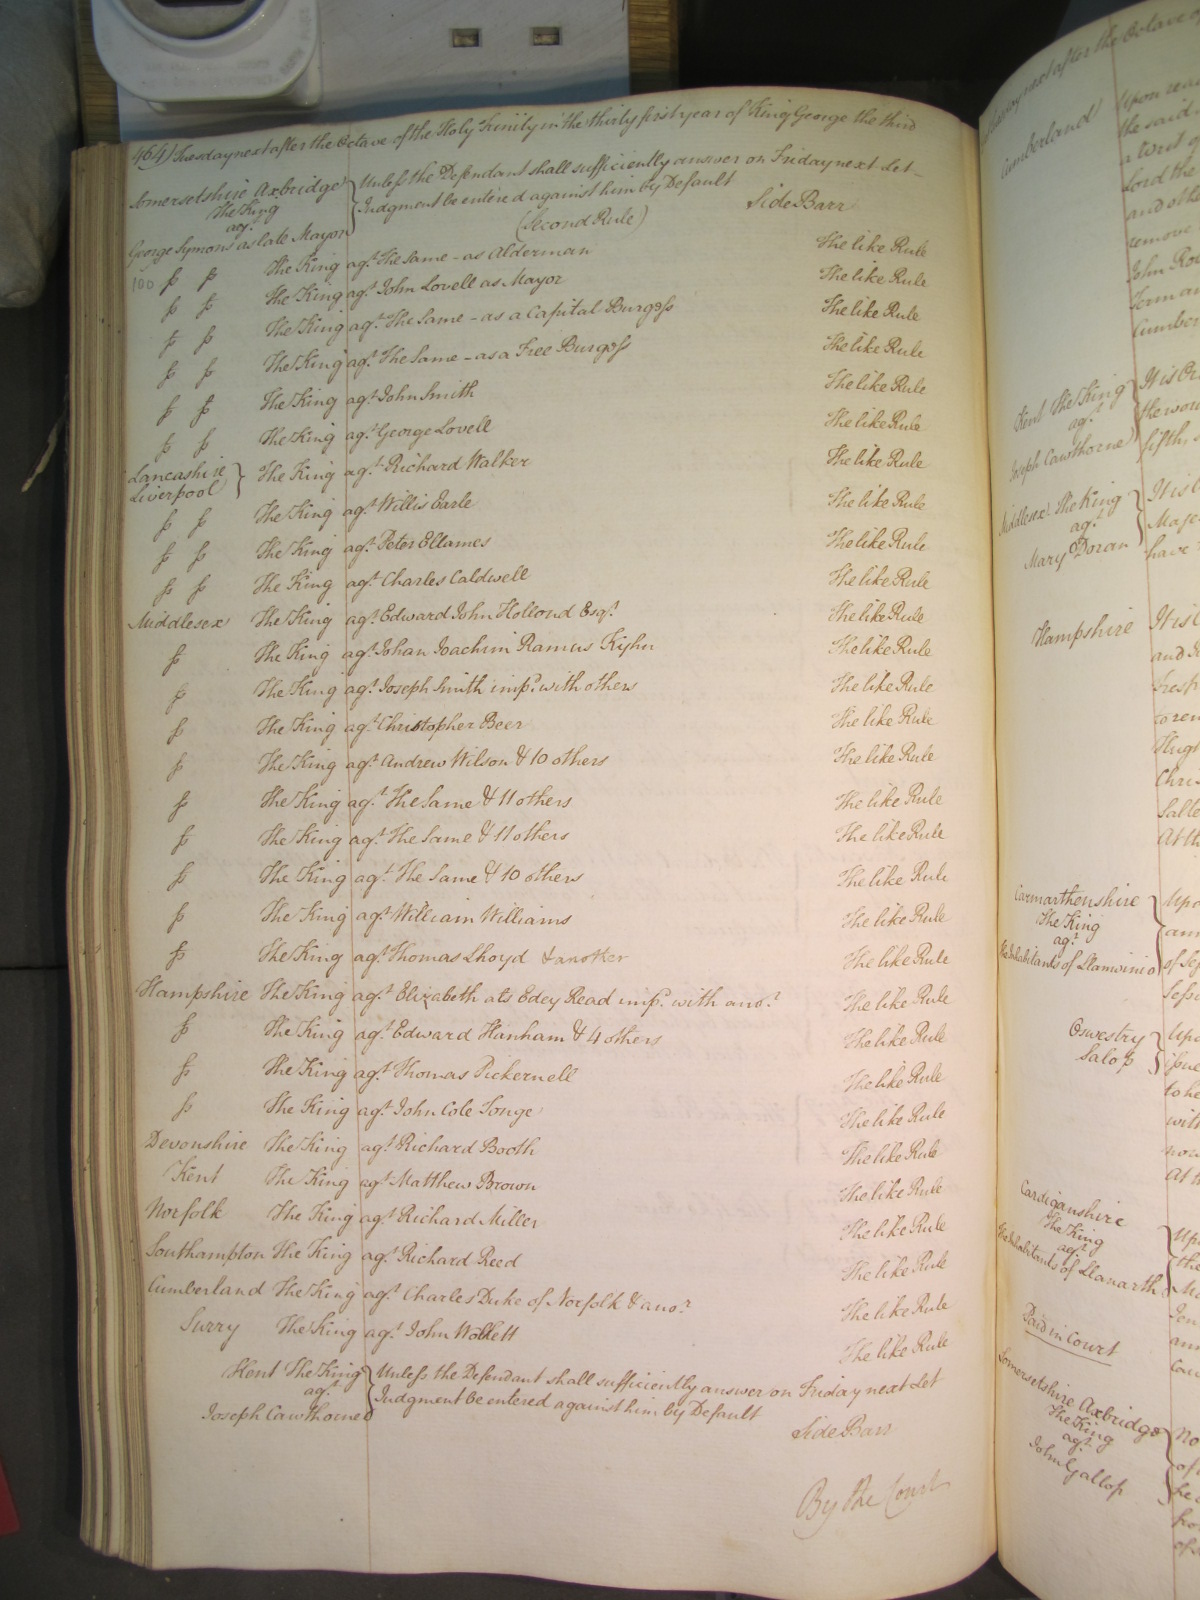 464) Tuesday next after the Octave of the Holy Trinity in the thirty first year of King George the third
Somersetshire Axbridge
The King
agt.
George Symons as late Mayor
Unless the Defendant shall sufficiently answer on Friday next Let
Judgment be entered against him by Default
Side Barr
(Second Rule)
100 The King agt. The Same - as Alderman The like Rule
The King agt. John Lovell as Mayor The like Rule
The King agt. The Same - as a Capital Burgess The like Rule
The King agt. The Same - as a Free Burgess The like Rule
The King agt. John Smith The like Rule
The King agt. George Lovell The like Rule
Lancashire
Liverpool
The King agt. Richard Walker The like Rule
The King agt. Willis Earle The like Rule
The King agt. Peter Ellames The like Rule
The King agt. Charles Caldwell The like Rule
Middlesex The King agt. Edward John Hollond Esqr. The like Rule
The King agt. Johan Joachim Ramus The like Rule
The King agt. Joseph Smith imp.d with others The like Rule
The King agt. Christopher Beer The like Rule
The King agt. Andrew Wilson & 10 others The like Rule
The King agt. The Same & 11 others The like Rule
The King agt. The Same & 11 others The like Rule
The King agt. The Same & 10 others The like Rule
The King agt. William Williams The like Rule
The King agt. Thomas Lhoyd & another The like Rule
Hampshire The King agt. Elizabeth ats Edey Read imp.d with anor. The like Rule
The King agt. Edward Hanham & 4 others The like Rule
The King agt. Thomas Pickernell The like Rule
The King agt. John Cole Tonge The like Rule
Devonshire The King agt. Richard Booth The like Rule
Kent The King agt. Matthew Brown The like Rule
Norfolk The King agt. Richard Miller The like Rule
Southampton The King agt. Richard Reed The like Rule
Cumberland The King agt. Charles Duke of Norfolk & anor. The like Rule
Surry The King agt. John The like Rule
Kent The King
agt.
Joseph Cawthorne
Unless the Defendant shall sufficiently answer on Friday next Let
Judgment be entered against him by Default
Side Barr
By the Court
next after the Octave
Cumberland
Upon
the said
a Writ
Lord the
and othe
remove
John
Term an
Cumber
Kent The King
agt.
Joseph Cawthorne
It is Or
the
fifth
Middlesex The King
agt.
Mary Doran
It is
Maje
have
Hampshire
It is
and
Carmarthenshire
The King
agt.
The Inhabitants of
Upo
of
Sess
Oswestry
Salop
Upo
issue
to he
with
now
At
Cardiganshire
The King
agt.
The Inhabitants of Llanarth
Upo
the
Paid in Court
Somersetshire Axbridge
The King
agt.
John Gallop
No
of
he